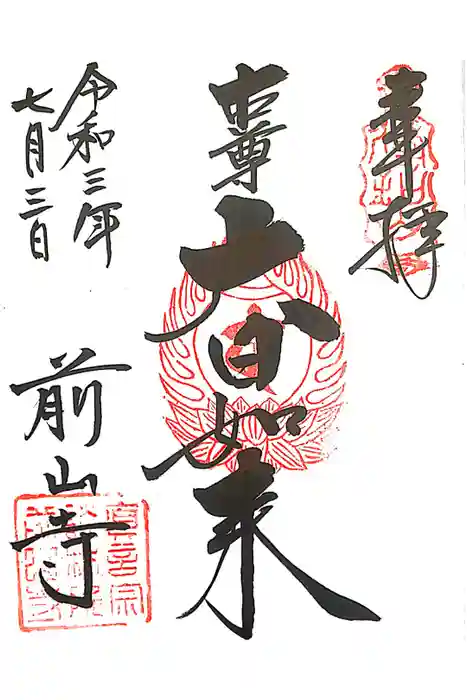 奉拝
本尊
大日如来
令和三年
七月三日
前山寺
真言宗